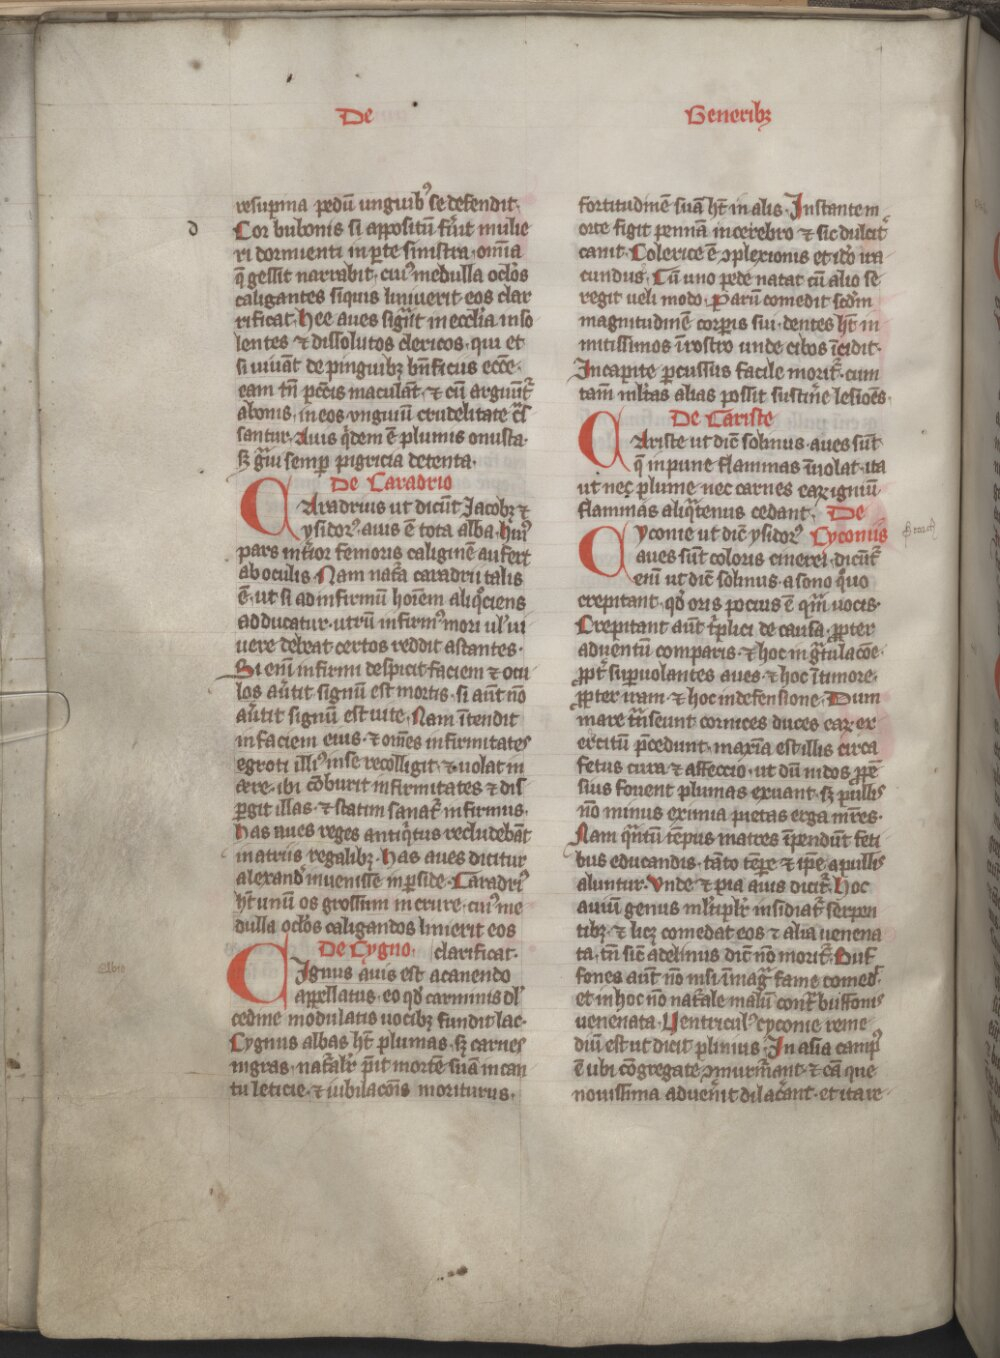 De
Generibꝫ
resupina pedū unguibꝰ se defendit·
d
Cor bubonis si appositū fuit mulie
ri dormienti in ꝑte sinistra· omīa
q̄ gessit narrabit· cuiꝰ medulla oclōs
caligantes siquis liniuerit eos clar
rificat· Hee aues sigͥt in eccl̄ia inso
lentes ⁊ dissolutos clericos· qui et
si uiuāt de pinguibꝫ bn̄ficiis ecc̄e·
eam tn̄ pctīs maculāt· ⁊ cū arguūtᷣ
abonis· in eos unguiū crudelitate
santur· Auis qͥdem ē plumis onusta·
sꝫ semꝑ pigricia detenta·
De Caradrio
Caradrius ut dicūt Jacobꝫ ⁊
ysidorꝰ· auis ē tota alba· huiꝰ
pars in̄tior femoris caliginē aufert
ab oculis· Nam nat̄a caradrii talis
ē· ut si ad infirmū hoīem aliqͦciens
adducatur· utrū infirmꝰ mori ul̓ ui
uere debeat certos reddit astantes·
Si enī infirmi despicit faciem ⁊ ocu
los au̓tit signū est mortis· si aūt nō
au̓tit signū est uite· Nam ītendit
in faciem eius· ⁊ om̄es infirmitates
egroti illiꝰ in se recolligit· ⁊ uolat in
aere· ibi cōburit infirmitates ⁊ dis
ꝑgit illas· ⁊ statim sanatᷣ infirmus·
Has aues reges antiqͥtus recludebāt
in atriis regalibꝫ· Has aues dicitur
alexandꝰ inuenisse in ꝑside· Caradriꝰ
ht̄ unū os grossum in crure· cuiꝰ me
dulla oclōs caligandos linierit eos
De Cygno· clarificat·
albio
Cignus auis est a canendo
appellatus· eo qd̓ carminis dl̓
cedine modulatis uocibꝫ fundit lac·
Cygnus albas ht̄ plumas· sꝫ carnes
nigras· nat̄alr̓ p̄uit mortē suā in can
tu leticie· ⁊ iubilacōis moriturus·
fortitudinē suā ht̄ in alis· Instante m
orte figit pennā in cerebro ⁊ sic dulcit̓
canit· Colerice ē ꝯplexionis et ido̓ ira
cundus· Cū uno pede natat cū alio se
regit ueli modo· Parū comedit scd̓m
magnitudinē corꝑis sui· dentes ht̄ in
mitissimos ī rostro unde cibos īcidit·
In capite ꝑcussus facile moritᷣ· cum
tam̄ ml̓tas alias possit sustin̓e lesiōes·
De Cariste
Cariste ut dic̄ solinus· aues sūt
q̄ inpune flammas īuolāt· ita
ut neqꝫ plume nec carnes eaꝝ igniū
flammas aliqͣtenus cedant· De
Cyconiis
Cyconie ut dic̄ ysidorꝰ
aues sūt coloris cinerei· dicūtᷣ
enī ut dic̄ solinus· a sono qͥuo
crepitant· qd̓ oris pocius ē qͣm uocis·
Crepitant aūt tͥplici de causa· ꝓpter
aduentū comparis· ⁊ hoc in gͣtulacōe·
ꝓpt̓ suꝑuolantes aues· ⁊ hoc ī timore·
ꝓpter iram· ⁊ hoc in defensione· Dum
mare tͣnseunt cornices duces eaꝝ ex
ercitū p̄cedunt· maxīa est illis circa
fetus cura ⁊ affeccio· ut dū nidos ꝓpē
sius fouent plumas exuant· sꝫ pullis
nō minus eximia pietas erga mr̄es·
Nam qͣntū tēpus matres īpendūt feti
bus educandis· tāto tēꝑe ⁊ ip̄e a pullis
aluntur· Vnde ⁊ pia auis dicitᷣ· Hoc
auiū genus ml̓tiplr̓ insidiatᷣ serpen
tibꝫ· ⁊ licꝫ comedat eos ⁊ alia uenena
ta· tn̄ sic̄ adelinus dic̄ nō moritᷣ· Buf
fones aūt nō nisi ī magͣ fame comedᷣ·
et in hoc nō nat̄ale malū contͣ buffonis
uenenata· Ventriculꝰ cyconie reme
diū est ut dicit plinius· In asia campꝰ
ē ubi cōgregate ꝯmurm̓ant· ⁊ eā que
nouissima aduen̓it dilac̓ant· et ita re